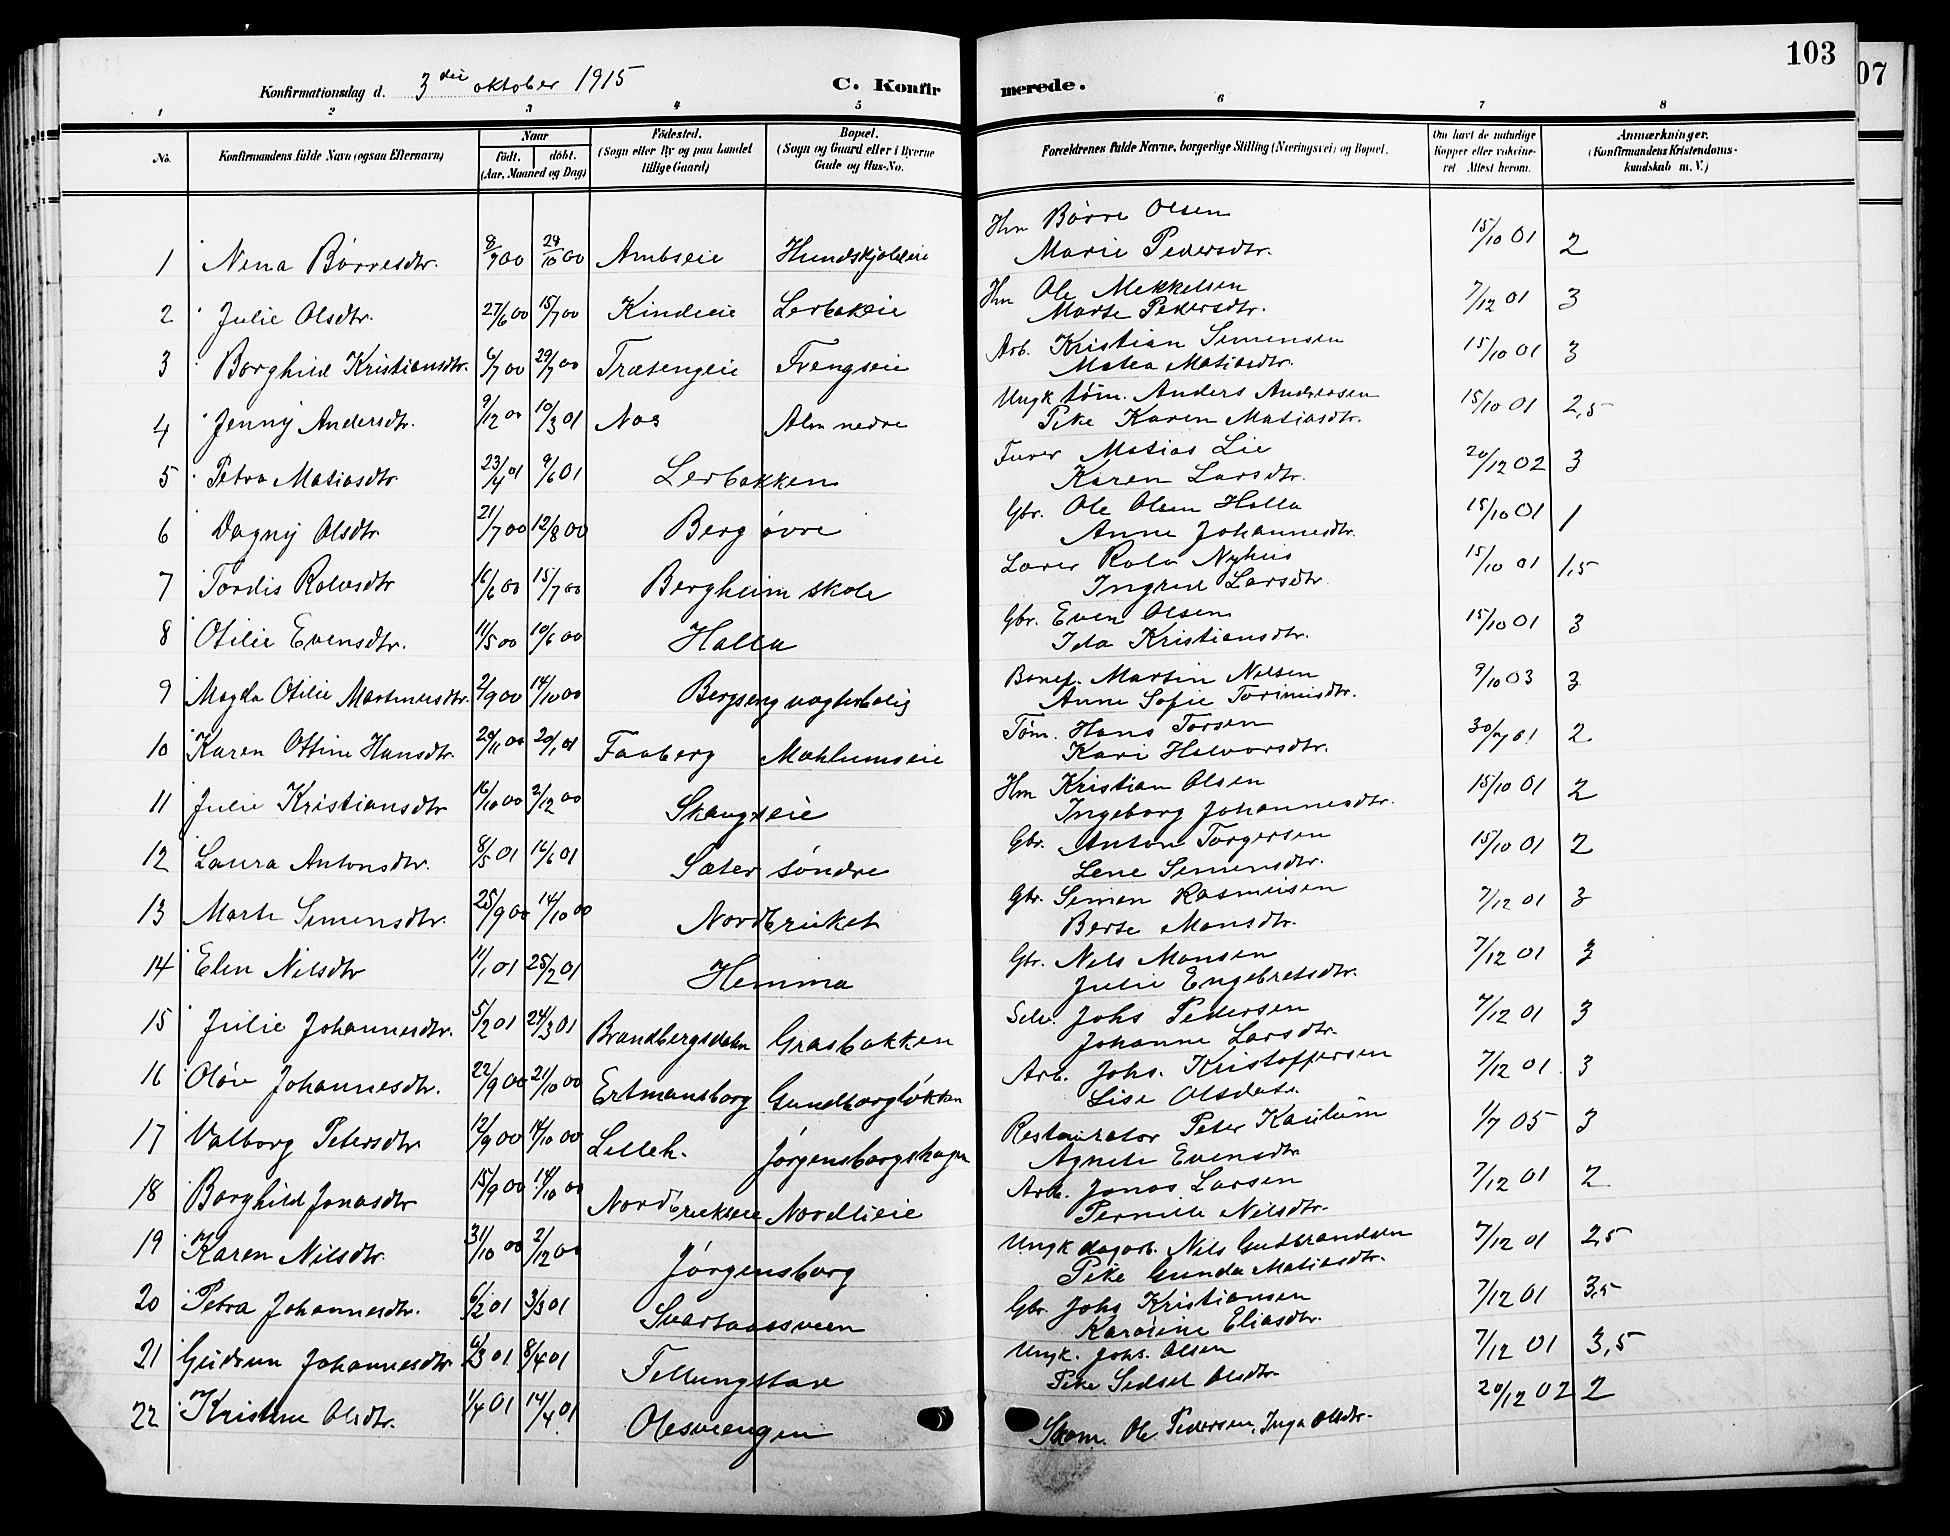 103
07
Konfirmationsdag d. 3die oktober 1915
C. Konfirmerede.
1 2 3 4 5 6 7 8
No.
Konfirmandens fulde Navn (ogsaa Efternavn)
Naar
født. døbt.
(Aar, Maaned og Dag)
Fødested.
(Sogn eller By og paa Landet
tillige Gaard)
Bopæl.
(Sogn og Gaard eller i Byerne
Gade og Hus-No.
Forældrenes fulde Navne, borgerlige Stilling (Næringsvei) og Bopæl.
Om havt de naturlige
Kopper eller vakcine-
ret. Attest herom.
Anmærkninger.
(Konfirmandens Kristendoms-
kundskab m. V.)
1 Nena Börresdtr. 8/7 00 28/10 00 Ambseie Hundskjoleie Hm Börre Olsen 15/10 01 2
Marie Pedersdtr.
2 Julie Olsdtr. 27/6 00 15/7 00 Kindseie Lerbakeie Hm Ole Mekkelsen 7/12 01 3
Marte Pedersdtr.
3 Borghild Kristiansdtr. 6/7 00 29/7 00 Træsengeie Frengseie Arb. Kristian Simensen 15/10 01 3
Matea Matiasdtr.
4 Jenny Andersdtr. 9/12 00 10/3 01 Nos Alm nedre Ungk tøm. Anders Andersen 15/10 01 2,5
Pike Karen Matiasdtr.
5 Petra Matiasdtr 23/4 01 9/6 01 Lerbakken Furer Matias Lie 20/12 02 3
Karen Larsdtr.
6 Dagny Olsdtr 21/7 00 12/8 00 Berg øvre Gbr. Ole Olsen Holla 15/10 01 1
Anne Johannesdtr.
7 Tordis Rolvsdtr 16/6 00 15/7 00 Bergheim skole Lærer Rolv Nyhus 15/10 01 1,5
Ingrid Larsdtr.
8 Otilie Evensdtr. 11/5 00 10/6 00 Holla Gbr. Even Olsen 15/10 01 3
Ida Kristiansdtr.
9 Magda Otilie Martinusdtr. 2/9 00 14/10 00 Bergseng vogterbolig Banef. Martin Nilsen 9/10 03 3
Anne Sofie Torinusdtr.
10 Karen Ottine Hansdtr. 20/11 00 20/1 01 Faaberg Mæhlumseie Tøm. Hans Torsen 30/7 01 2
Kari Halvorsdtr.
11 Julie Kristiansdtr 16/10 00 2/12 00 Skaugseie Hm Kristian Olsen 15/10 01 2
Ingeborg Johannesdtr.
12 Laura Antonsdtr. 8/5 01 16/6 01 Sæter søndre Gbr. Anton Torgersen 15/10 01 2
Lene Simensdtr.
13 Marte Simensdtr. 25/9 00 14/10 00 Nordbruket Gbr. Simen Rasmusen 7/12 01 3
Berte Monsdtr.
14 Elen Nilsdtr 11/1 01 25/2 01 Hemma Gbr. Nils Monsen 7/12 01 3
Julie Engebretsdtr.
15 Julie Johannesdtr. 5/2 01 24/3 01 Brandbergsdalen Grasbakken Selv. Johs Pedersen 7/12 01 3
Johanne Larsdtr.
16 Oløv Johannesdtr. 22/9 00 21/10 00 Ertmansborg Gundborgløkken Arb. Johs. Kristoffersen 7/12 01 3
Lise Olsdatr.
17 Valborg Petersdtr 12/9 00 14/10 00 Lilleh. Jørgensborgshagen Restauratør Peter Kaulum 1/7 05 3
Agnete Evensdtr
18 Borghild Jonasdtr 15/9 00 14/10 00 Nordbrukseie Nordlieie Arb. Jonas Larsen 7/12 01 2
Pernille Nilsdtr.
19 Karen Nilsdtr. 31/10 00 2/12 00 Jørgensborg Ungk dagarb. Nils Gudbrandsen 7/12 01 2,5
Pike Gunda Matiasdtr.
20 Petra Johannesdtr. 6/2 01 3/3 01 Svartaassveen Gbr. Johs Kristiansen 7/12 01 3,5
Karoline Eliasdtr.
21 Gudrun Johannesdtr 6/3 01 8/4 01 Fellungstave Ungk. Johs. Olsen 7/12 01 3,5
Pike Sidsel Olsdtr.
22 Kristine Olsdtr. 1/4 01 14/4 01 Olesveengen Skom. Ole Pedersen, Inga Olsdtr. 20/12 02 2